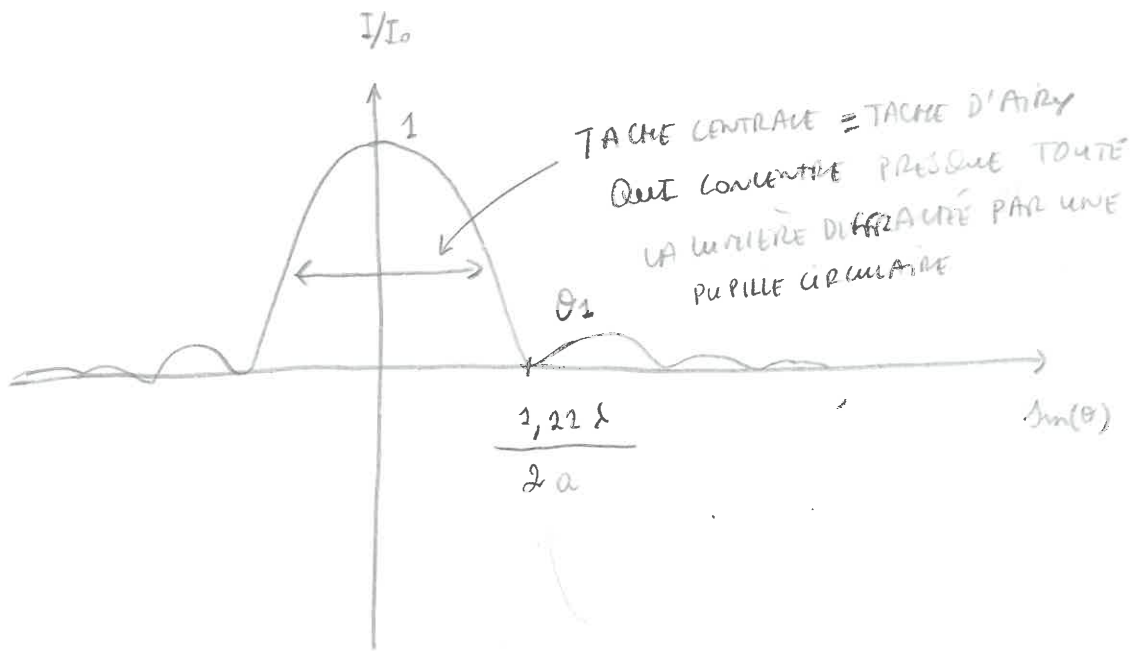 I/I₀
1
TACHE CENTRALE = TACHE D'AIRY
QUI CONCENTRE PRESQUE TOUTE
LA LUMIÈRE DIFFRACTÉE PAR UNE
PUPILLE CIRCULAIRE
θ1
1,22 λ
2 a
sin(θ)